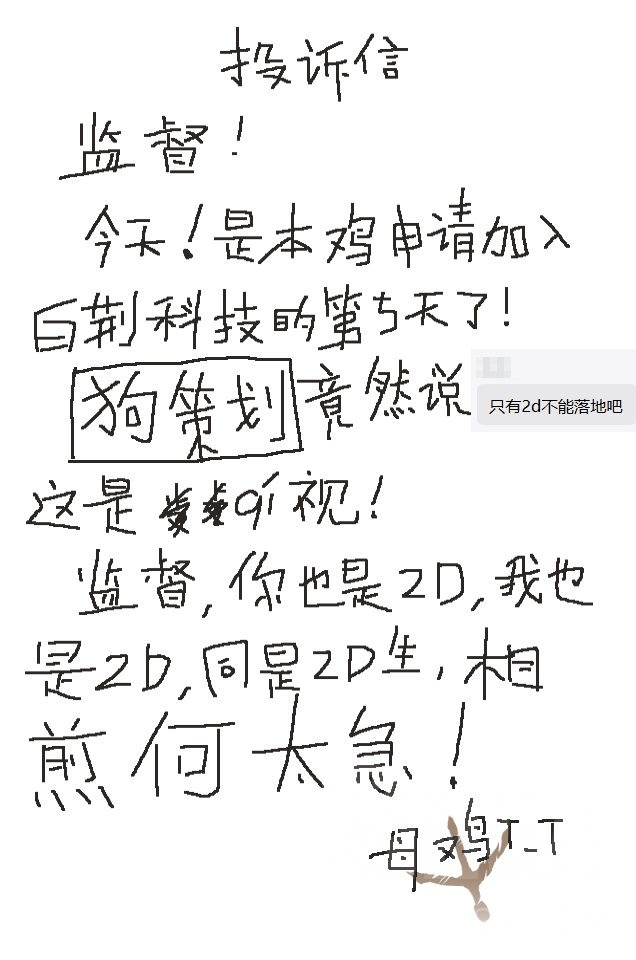 投诉信
监督！
今天！是本鸡申请加入
白荆科技的第5天了！
狗策划竟然说
只有2d不能落地吧
这是听视！
监督，你也是2D，我也
是2D，同是2D生，相
煎何太急！
母鸡T_T